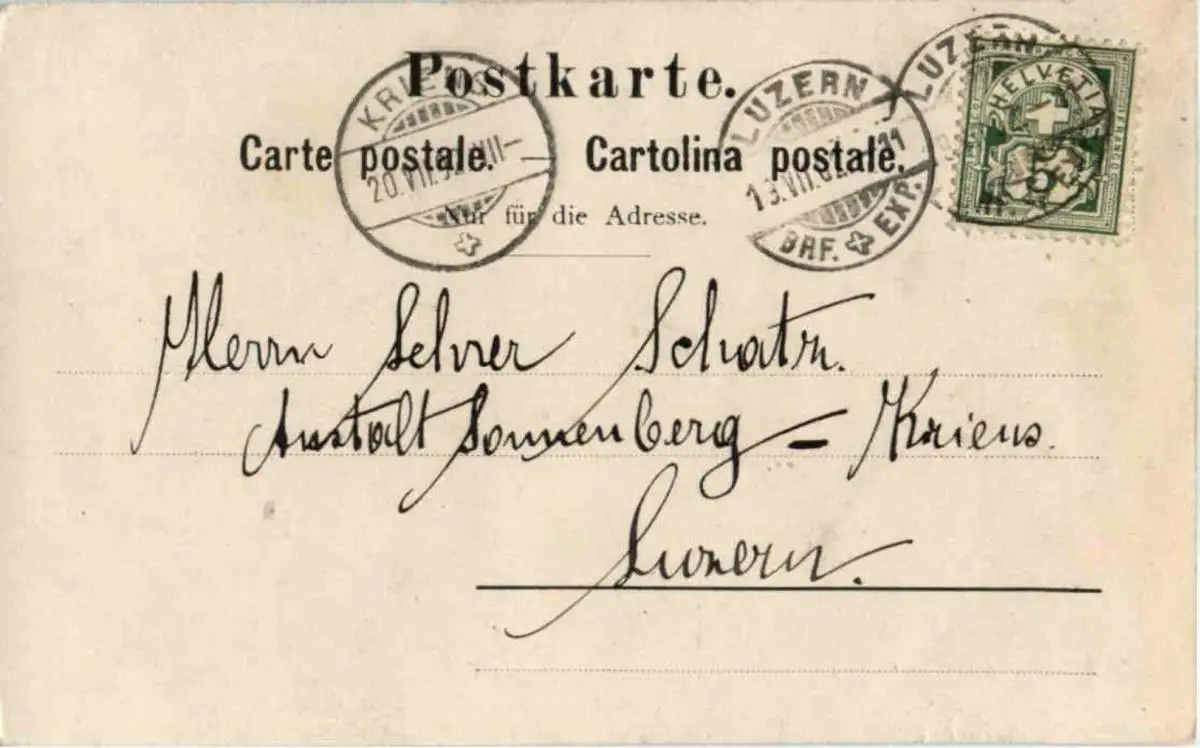 Postkarte.
Carte postale. Cartolina postale.
Nur für die Adresse.
KRIENS
20.VII. VIII-
LUZERN
13.VII.02. 11
BRF. EXP.
LUZERN
HELVETIA
5
Herrn Lehrer Schatzm.
Anstalt Sonnenberg = Kriens.
Luzern.